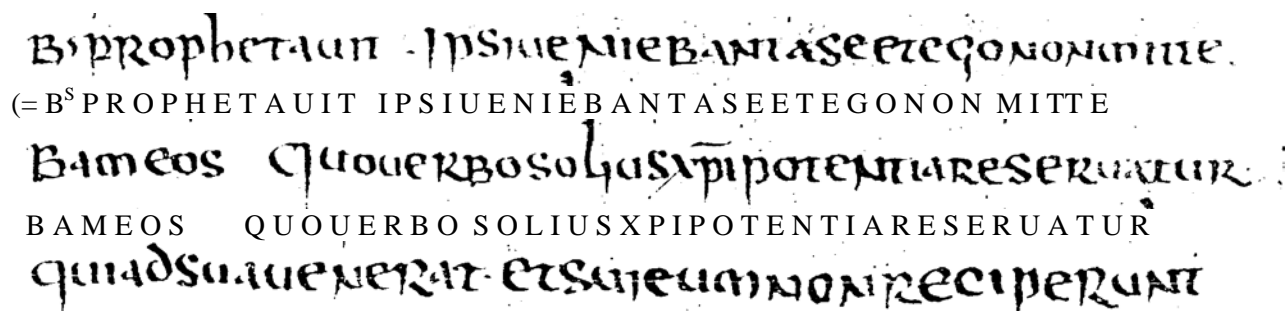 B;prophetauit . Ipsiueniebantaseetegononmitte.
(= Bˢ PROPHETAUIT IPSIUENIEBANTASEETEGONON MITTE
Bameos quouerbosoliusxp̅ipotentiareseruatur
BAMEOS QUOUERBO SOLIUSXPIPOTENTIARESERUATUR
quiadsuauenerat. etsuieumnonreciperunt